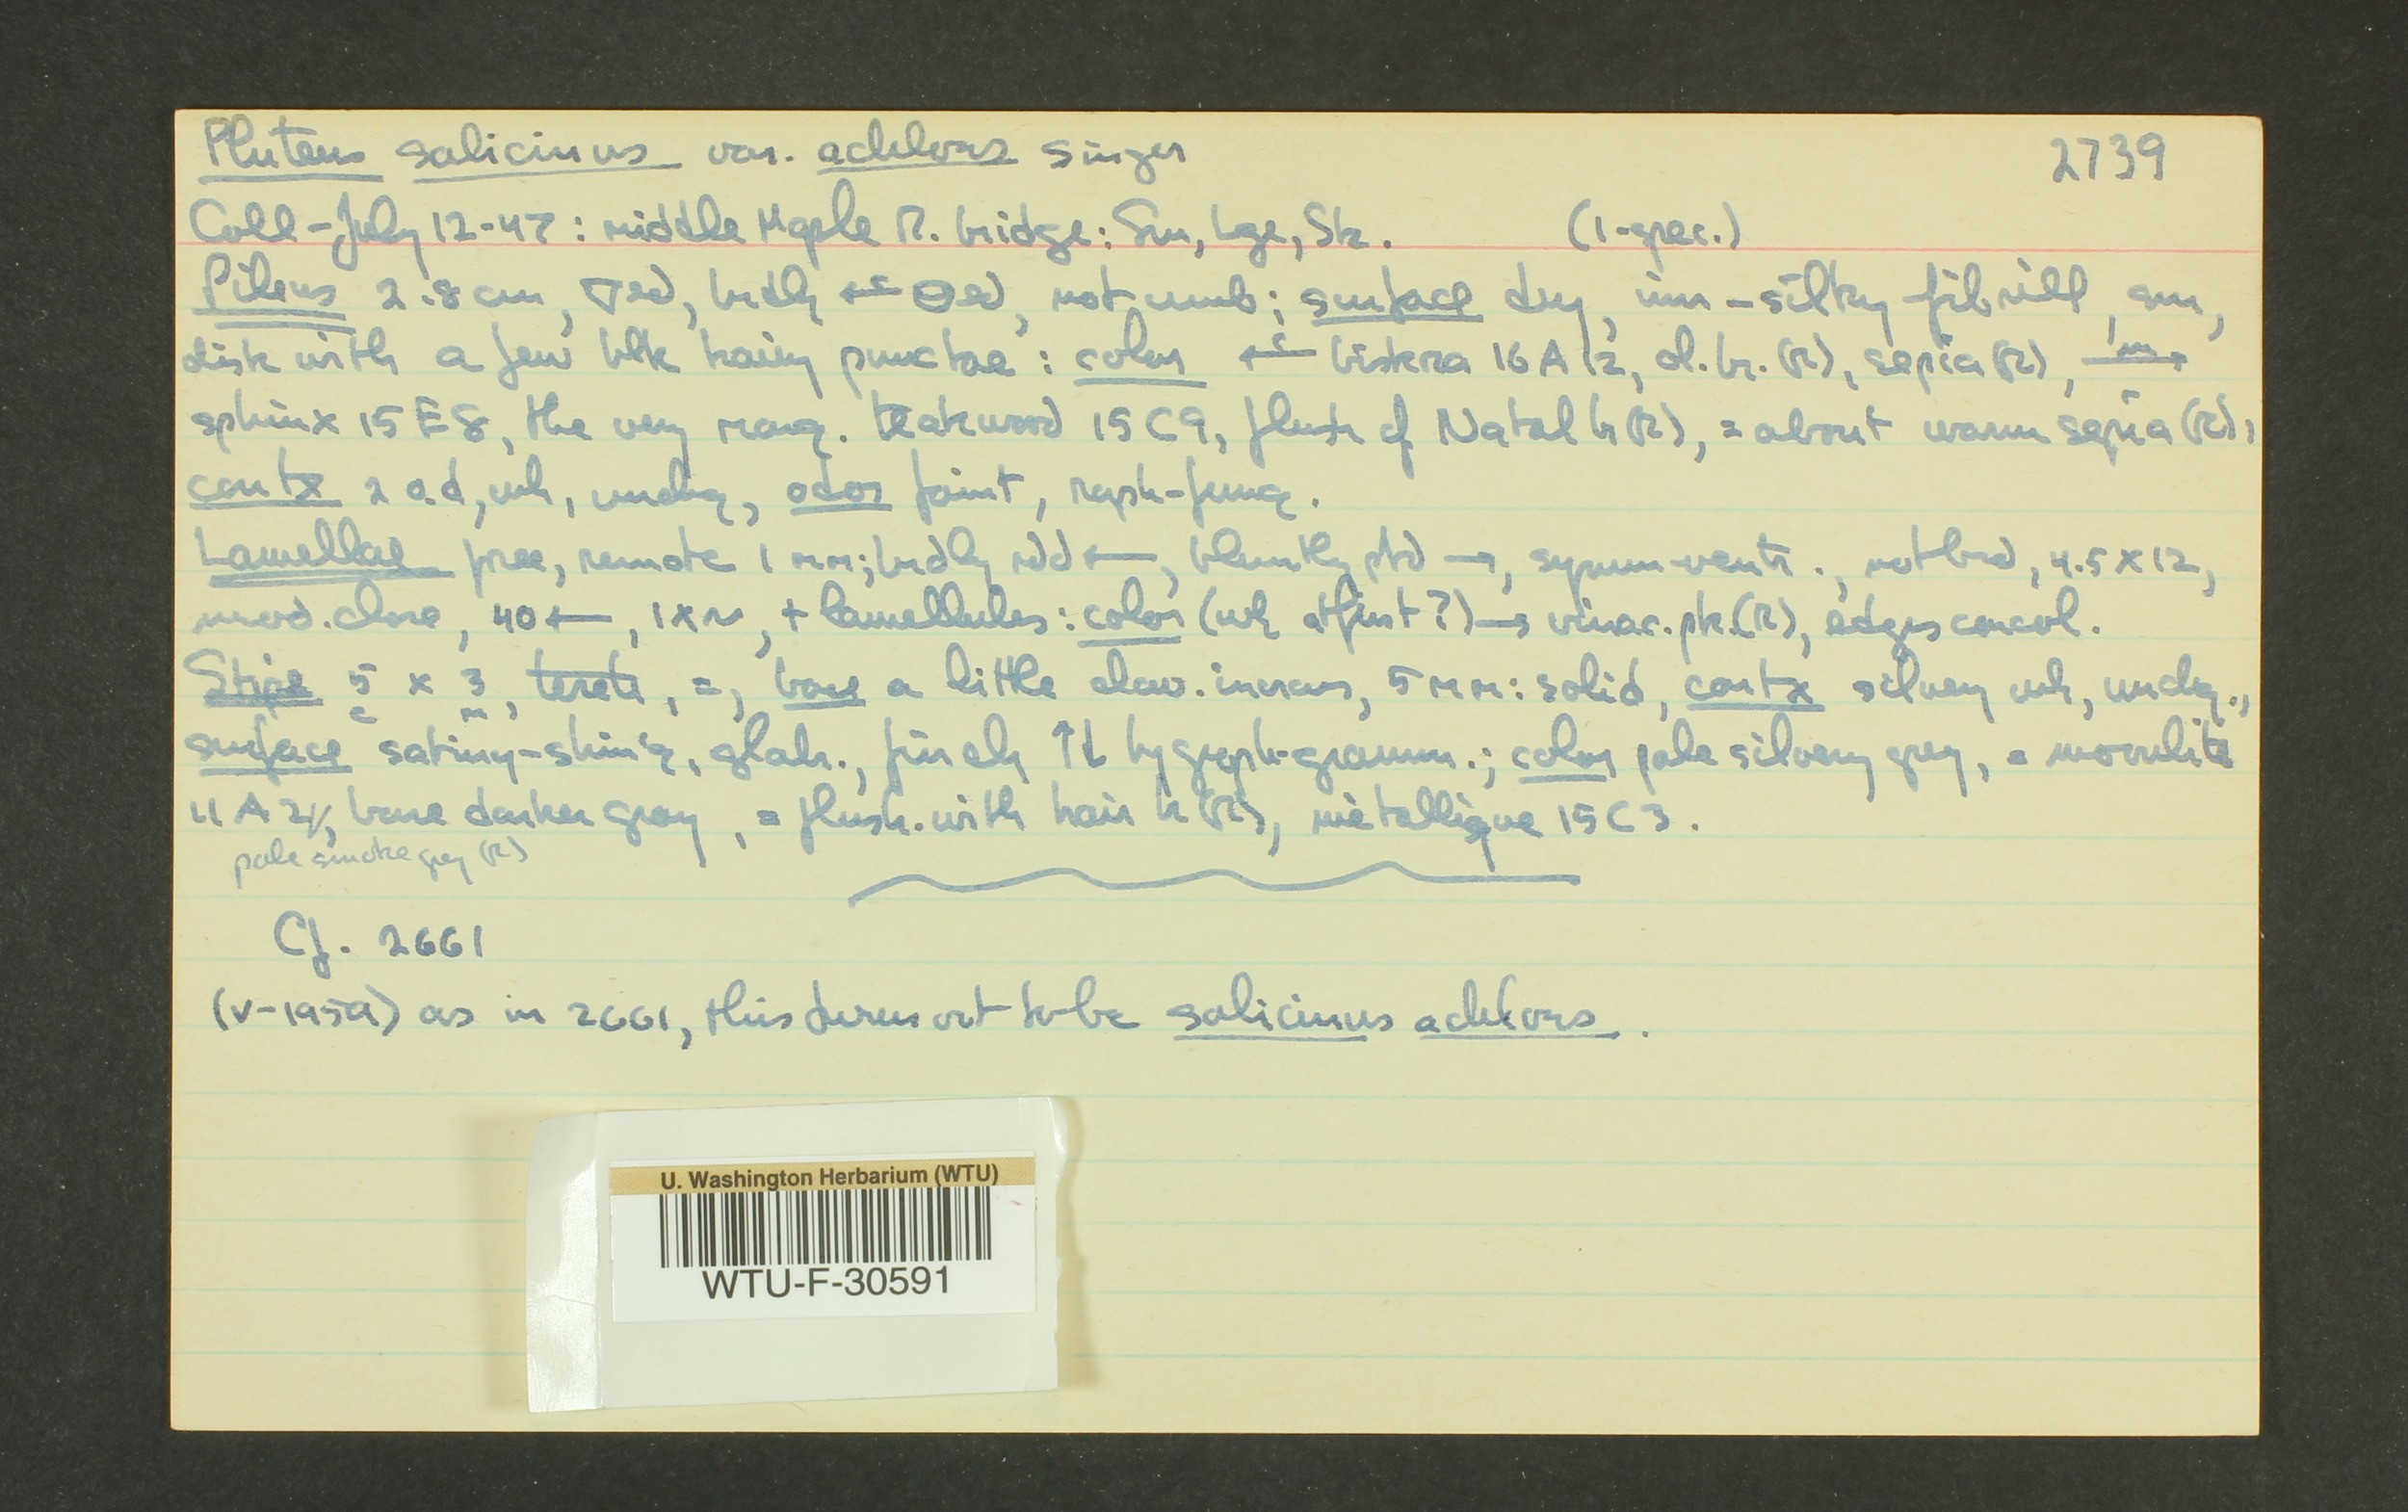 Pluteus salicinus var. achloes Singer 2739
Coll-July 12-47: middle Maple R. bridge: Sm, Lge, Sk. (1-spec.)
Pileus 2.8 cm, ▽ed, brdly ←c ⊖ed, not umb; surface dry, inn-silky fibrill, sm,
disk with a few blk hairy punctae: color ←c biskra 16 A 12, cl. br. (R), sepia (R), m→
sphinx 15 E 8, the very marg. teakwood 15 C 9, flush of Natal br (R), = about warm sepia (R);
contx 2 a.d, wh, unchg, odor faint, raph-fung.
Lamellae free, remote 1 mm; brdly rdd ←, bluntly ptd →, symm-ventr., not brd, 4.5 x 12,
mod. close, 40 ←, 1 x n, + lamellules: color (wh at first?) → vinac. pk. (R), edges concol.
Stipe 5 x 3, terete, =, base a little clav. incras, 5 mm: solid, contx silvery wh, unchg.,
c m
surface satiny-shin'g, glab., finely ↑↓ hygroph-gramm.; color pale silvery grey, =
11 A 2, base darker gray, = flush. with hair br (R), métallique 15 C 3.
pale smoke grey (R)
Cf. 2661
(V-1959) as in 2661, this turns out to be salicinus achloes.
U. Washington Herbarium (WTU)
WTU-F-30591